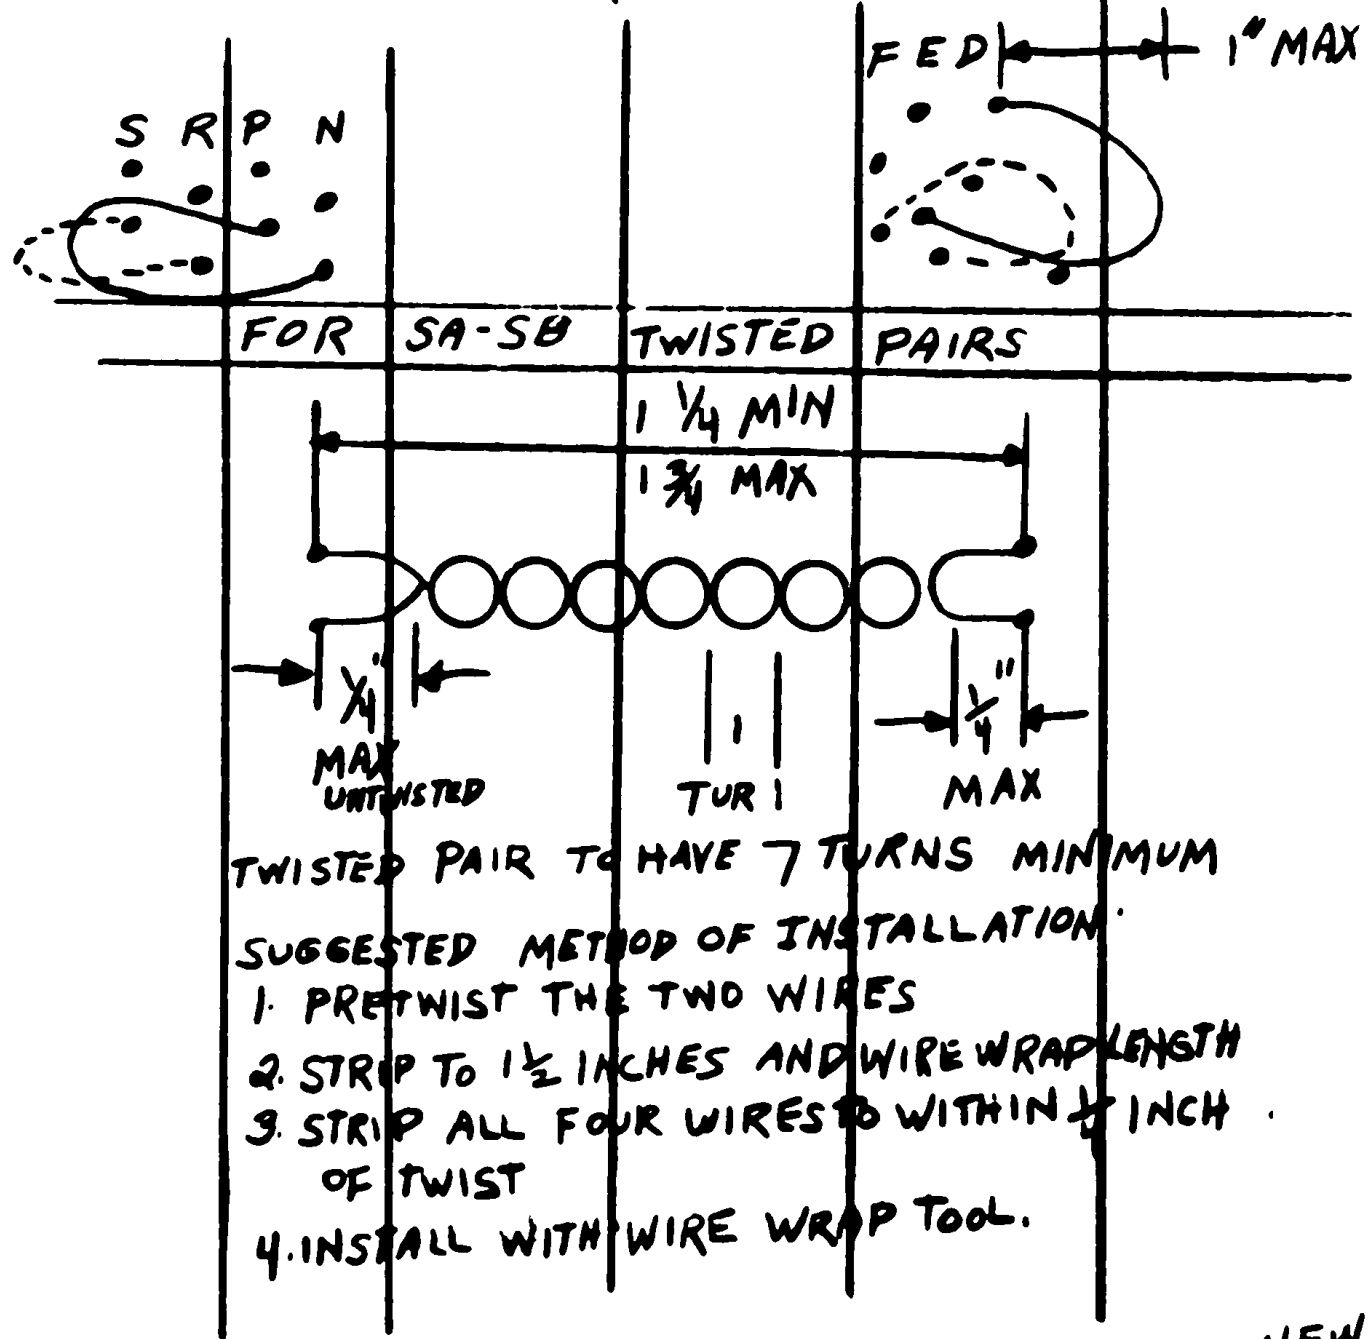 F E D 1" MAX
S R P N
FOR SA-SB TWISTED PAIRS
1 1/4 MIN
1 3/4 MAX
1/4" 1/4"
1
MAX MAX
UNTWISTED
TUR
TWISTED PAIR TO HAVE 7 TURNS MINIMUM
SUGGESTED METHOD OF INSTALLATION.
1. PRETWIST THE TWO WIRES
2. STRIP TO 1 1/2 INCHES AND WIRE WRAP LENGTH
3. STRIP ALL FOUR WIRES TO WITHIN INCH
OF TWIST
4. INSTALL WITH WIRE WRAP TOOL.